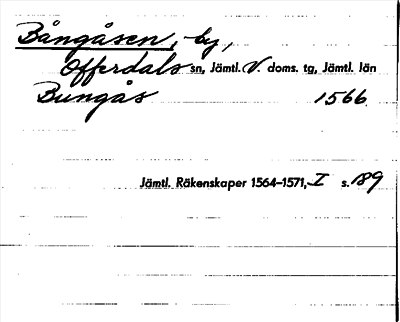 Bångåsen, by,
Offerdals sn, Jämtl. V. doms. tg, Jämtl. län
Bungås 1566
Jämtl. Räkenskaper 1564–1571, I s. 189